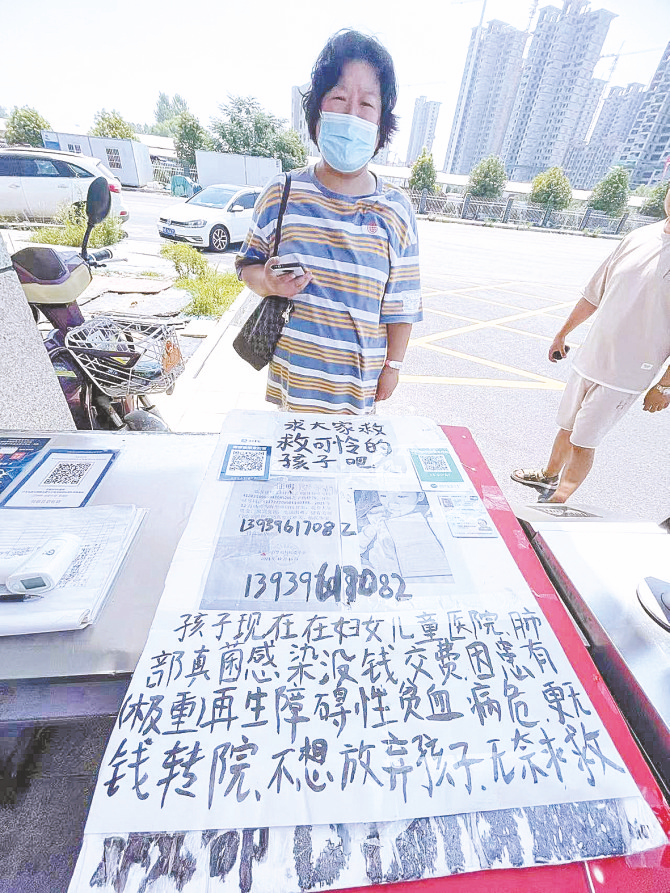 求大家救
救可怜的
孩子吧
证明
13939617082
13939617082
孩子现在在妇女儿童医院.肺
部真菌感染没钱交费.因患有
(极重)再生障碍性贫血.病危、更无
钱转院、不想放弃孩子.无奈求救